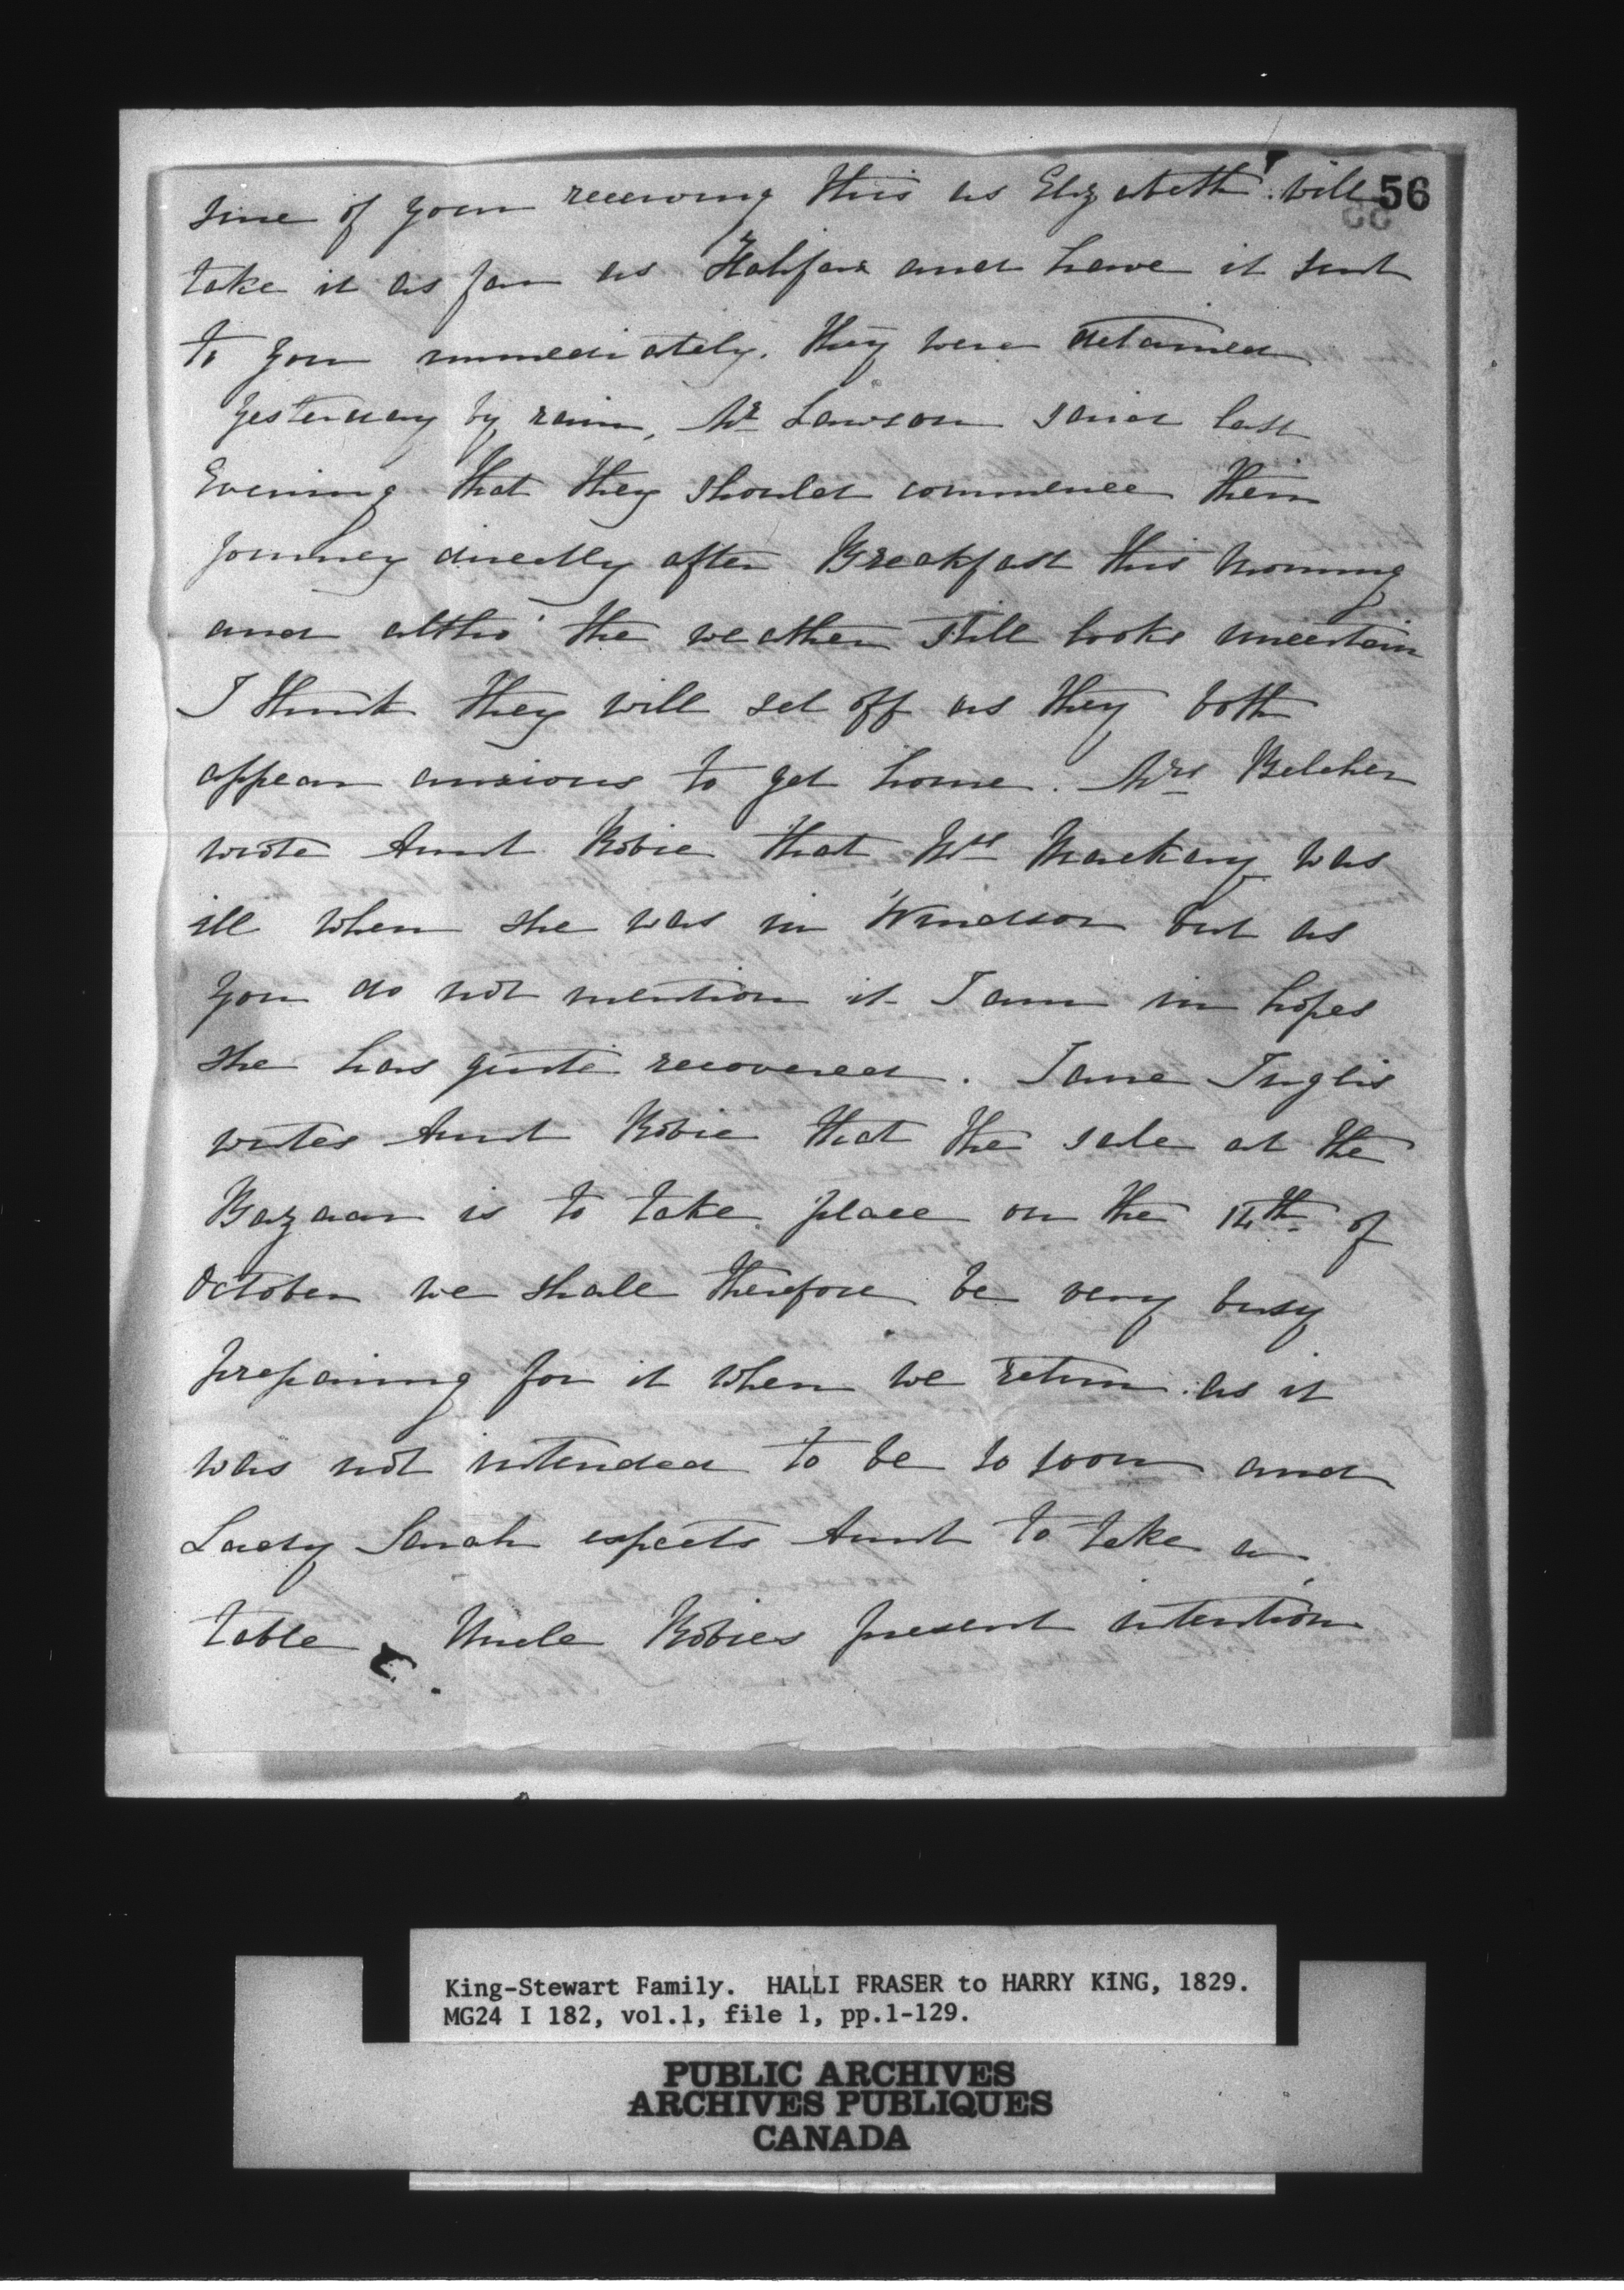 sure of your receiving this as Elizabeth will 56
take it as far as Halifax and have it sent
to you immediately. They were detained
yesterday by rain, Mr Lawson said last
Evening that they should commence their
journey directly after Breakfast this Morning
and altho' the weather still looks uncertain
I think they will set off as they both
appear anxious to get home. Mrs Belcher
wrote Aunt Robie that Mrs Mackay was
ill when she was in Windsor but as
you do not mention it I am in hopes
she has quite recovered. Jane Inglis
writes Aunt Robie that the sale at the
Bazaar is to take place on the 14th of
October we shall therefore be very busy
preparing for it when we return as it
was not intended to be so soon and
Lady Sarah expects Aunt to take a
table. Uncle Robies present intention
King-Stewart Family. HALLI FRASER to HARRY KING, 1829.
MG24 I 182, vol.1, file 1, pp.1-129.
PUBLIC ARCHIVES
ARCHIVES PUBLIQUES
CANADA